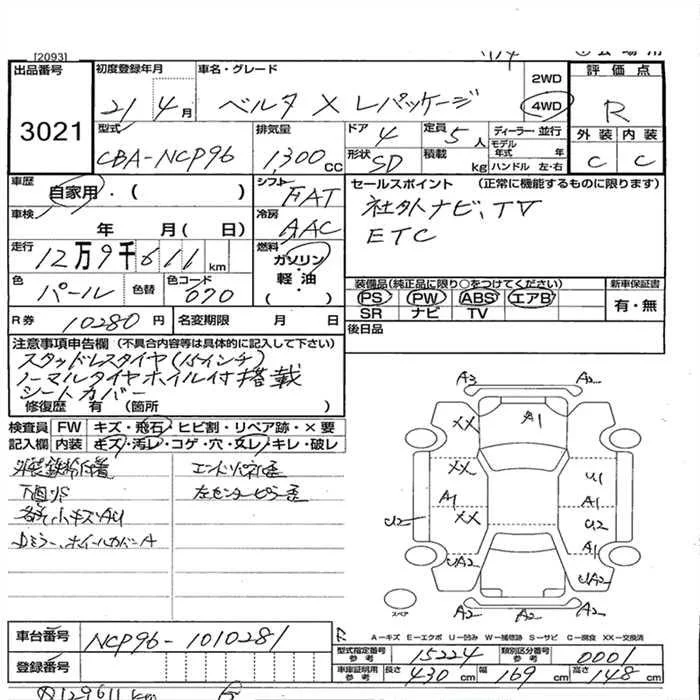 [2093]
出品番号 初度登録年月 車名・グレード 2WD 評価点
3021 21 4月 ベルタ X Lパッケージ 4WD R
型式 排気量 ドア 4 定員 5人 ディーラー・並行 外装 内装
CBA-NCP96 1,300CC 形状 SD 積載 kg モデル年式 年 ハンドル 左・右 C C
車歴 自家用・( ) シフト FAT セールスポイント (正常に機能するものに限ります)
車検 年 月( 日) 冷房 AAC 社外ナビ、TV
走行 12万9千611km 燃料 ガソリン・軽油・( ) ETC
色 パール 色替 色コード 070 装備品(純正品に限り○をつけてください) 新車保証書
PS PW ABS エアB 有・無
SR ナビ TV
R券 10280円 名変期限 月 日 後日品
注意事項申告欄 (不具合内容等は具体的に記入して下さい)
スタッドレスタイヤ(15インチ)
ノーマルタイヤホイル付搭載
シートカバー
修復歴 有 (箇所 )
検査員記入欄 FW キズ・飛石・ヒビ割・リペア跡・×要
内装 キズ・汚レ・コゲ・穴・スレ・キレ・破レ
エンドパネル歪
下回りS 左センターピラー歪
各所小キズAU
Dミラー、ホイールカバーA
A3 A2
XX A1
XX U1
A1 A1
U2 XX U2
A1
UA2 UA2
A2 A2 A2
スペア
R A－キズ E－エクボ U－凹み W－補修跡 S－サビ C－腐食 XX－交換済
車台番号 NCP96-1010281
型式指定番号 参考 15224 類別区分番号 参考 0001
登録番号 車庫証明用 参考 長さ 430cm 幅 169cm 高さ 148cm
129611km